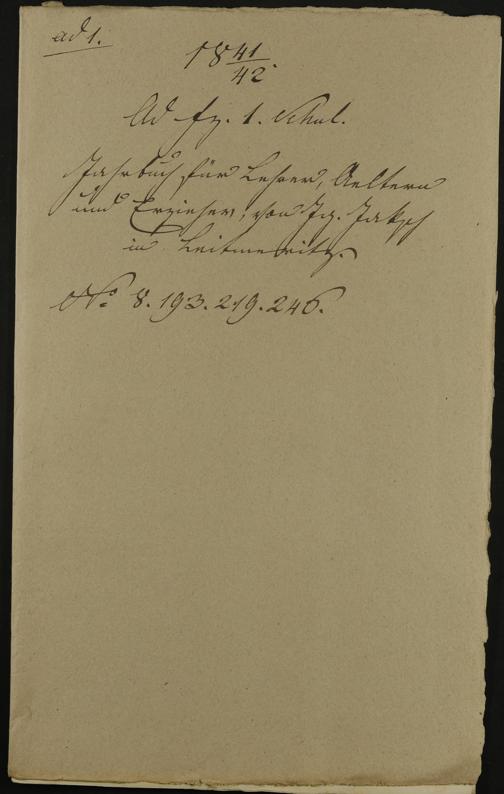 ad 1.
18 41/42.
Ad fz. 1. Schul.
Jahrbuch für Lehrer, Aeltern
und Erzieher, von Ig. Jaksch
in Leitmeritz.
No. 8. 193. 219. 246.